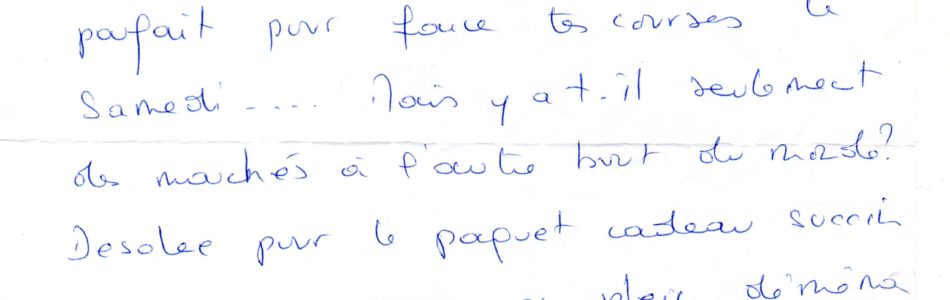 parfait pour faire tes courses le
Samedi .... Mais y a t-il seulement
des marchés à l'autre bout du monde?
Desolée pour le paquet cadeau succin
plein déména